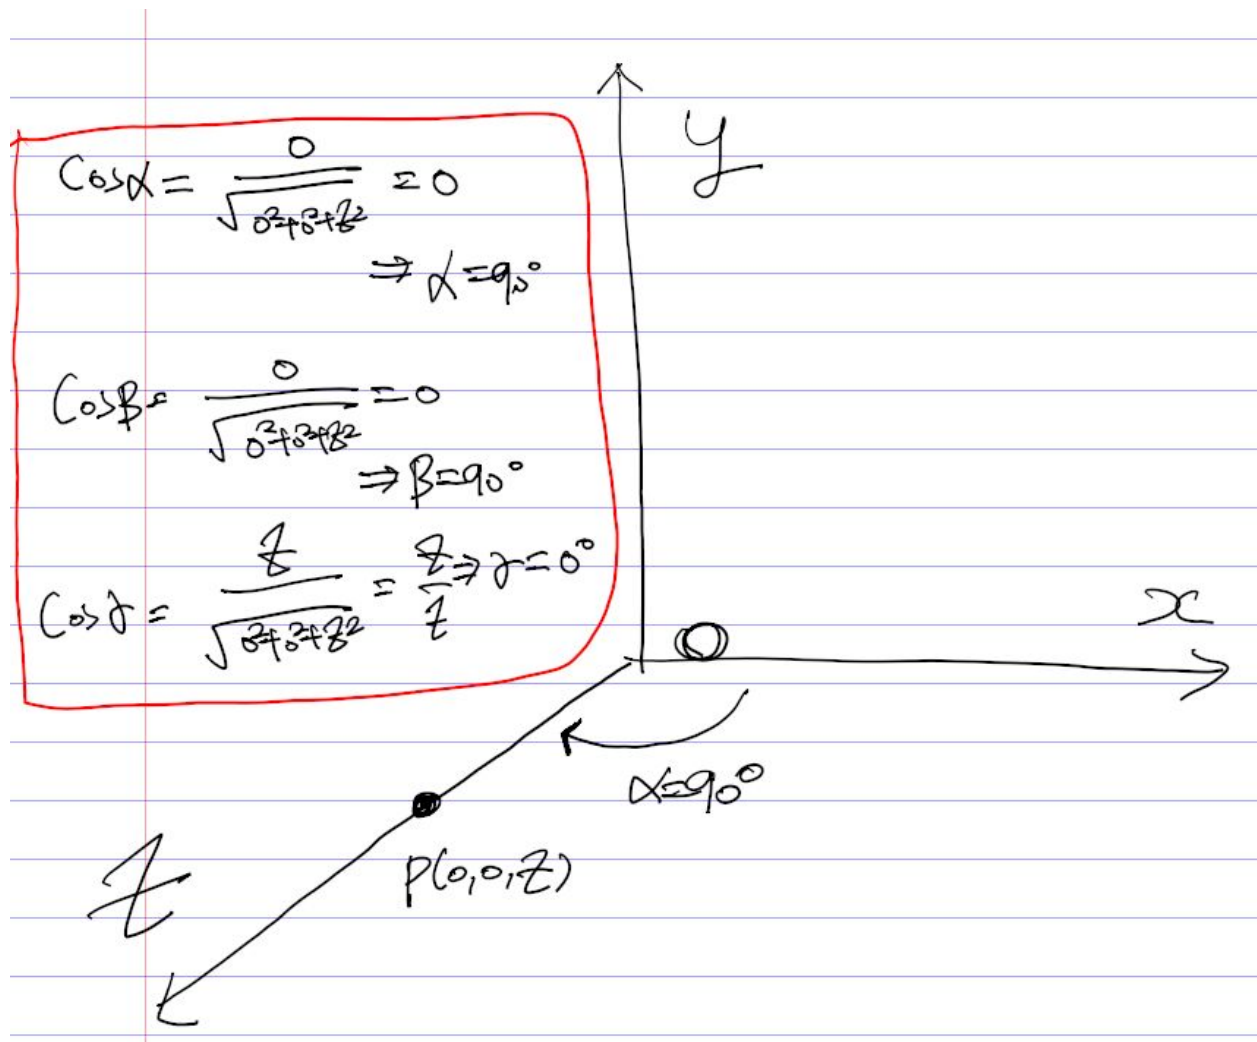 Cosα = 0/√(0²+0²+z²) = 0
⇒ α=90°
Cosβ= 0/√(0²+0²+z²) = 0
⇒ β=90°
Cosγ = z/√(0²+0²+z²) = z/z ⇒ γ=0°
y
x
O
α=90°
P(0,0,z)
z